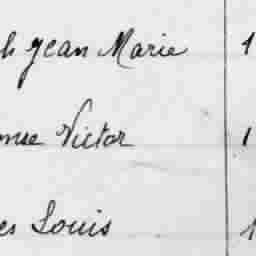 Jean Marie 1
Victor 1
Louis 1